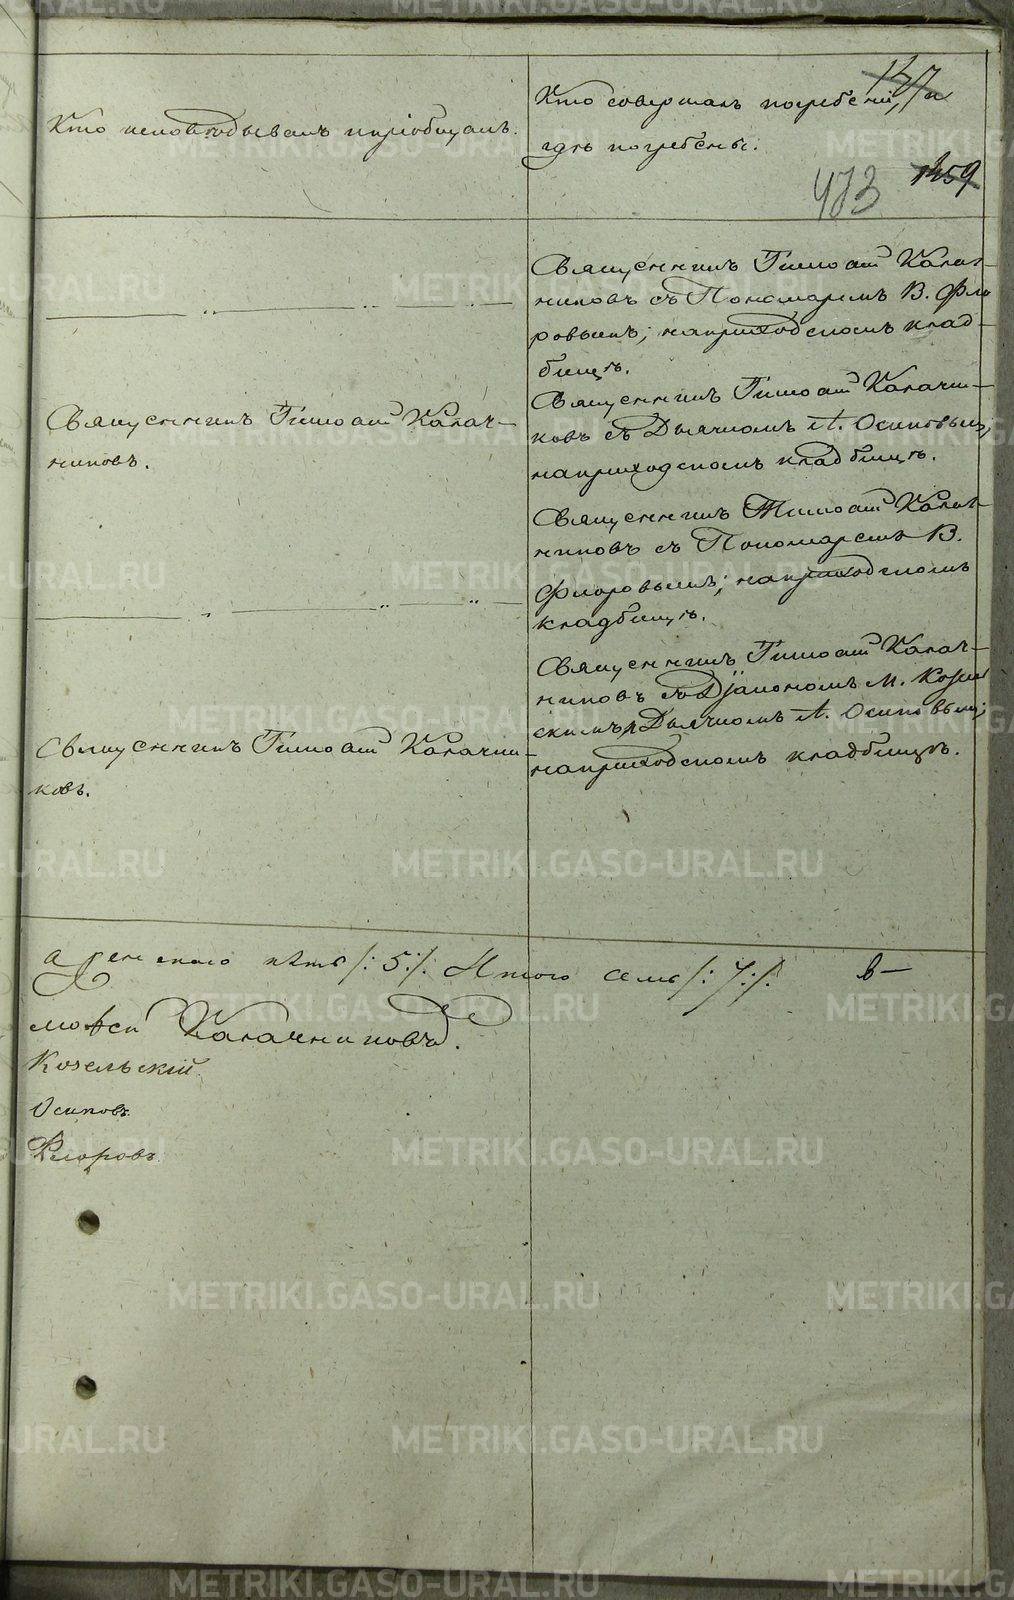 147
Кто исповѣдывалъ и приобщалъ.
Кто совершалъ погребеніе, и
гдѣ погребены.
473 1459
Священникъ Тимоѳей Калач-
никовъ съ Пономаремъ В. Фло
ровымъ; на приходскомъ клад-
бищѣ.
Священникъ Тимоѳей Калач-
никовъ.
Священникъ Тимоѳей Калачни-
ковъ съ Дьячкомъ А. Осиповымъ;
на приходскомъ кладбищѣ.
Священникъ Тимоѳей Калач-
никовъ съ Пономаремъ В.
Флоровымъ; на приходскомъ
кладбищѣ.
Священникъ Тимоѳей Калачни-
ковъ.
Священникъ Тимоѳей Калач-
никовъ съ Діакономъ М. Козель
скимъ и Дьячкомъ А. Осиповымъ;
на приходскомъ кладбищѣ.
а женскаго пять /: 5 :/. Итого семь /: 7 :/. в—
моѳей Калачниковъ.
Козельскій.
Осиповъ.
Флоровъ.
METRIKI.GASO-URAL.RU